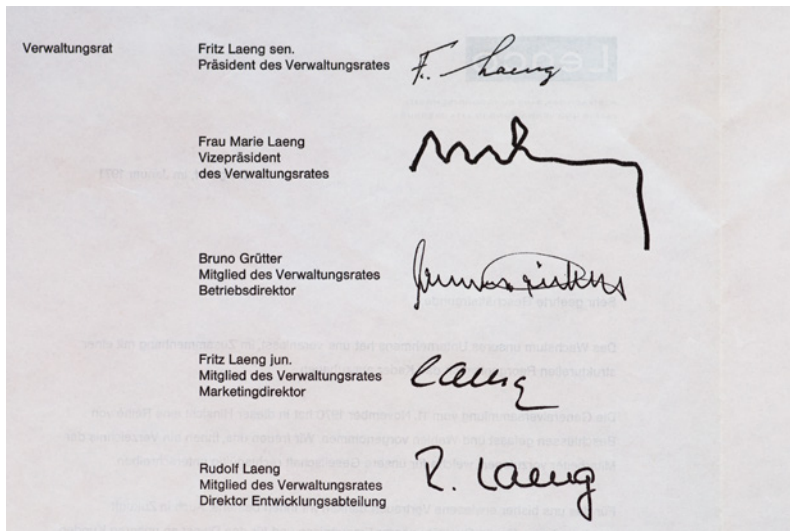 Verwaltungsrat
Fritz Laeng sen.
Präsident des Verwaltungsrates
F. Laeng
Frau Marie Laeng
Vizepräsident
des Verwaltungsrates
Bruno Grütter
Mitglied des Verwaltungsrates
Betriebsdirektor
Fritz Laeng jun.
Mitglied des Verwaltungsrates
Marketingdirektor
Laeng
Rudolf Laeng
Mitglied des Verwaltungsrates
Direktor Entwicklungsabteilung
R. Laeng